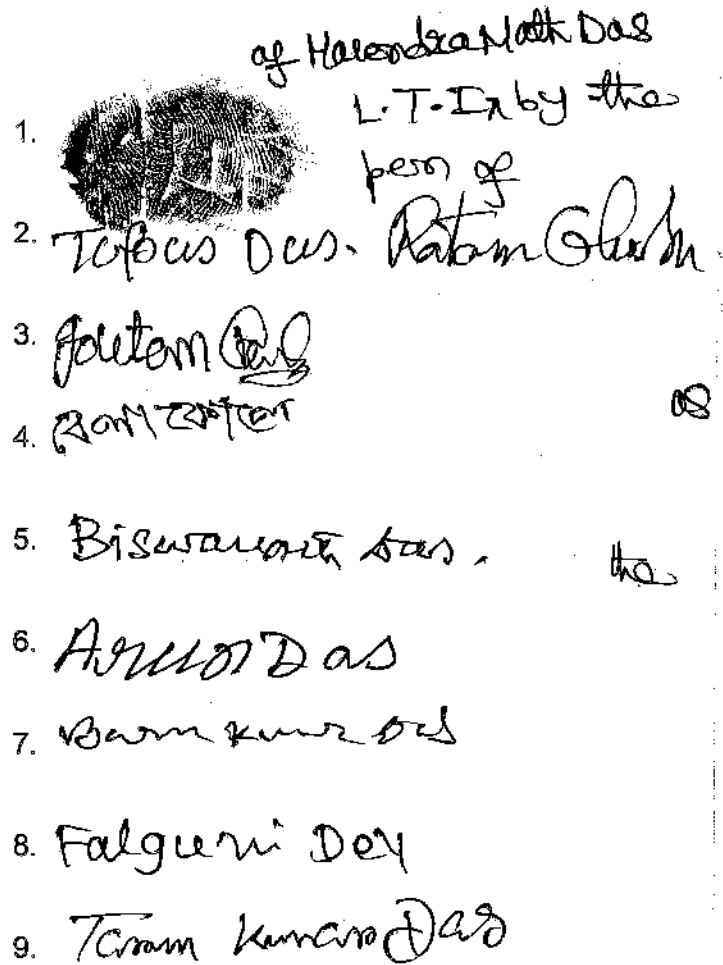 of Harendra Nath Das
1. L.T.In by the
pen of
2. Tapas Das. Ratan Ghosh
3. Goutam Paul
4.
as
5. Biswanath Das.
the
6. Arun Das
7. Barun Kumar Das
8. Falguni Dey
9. Tarun Kumar Das